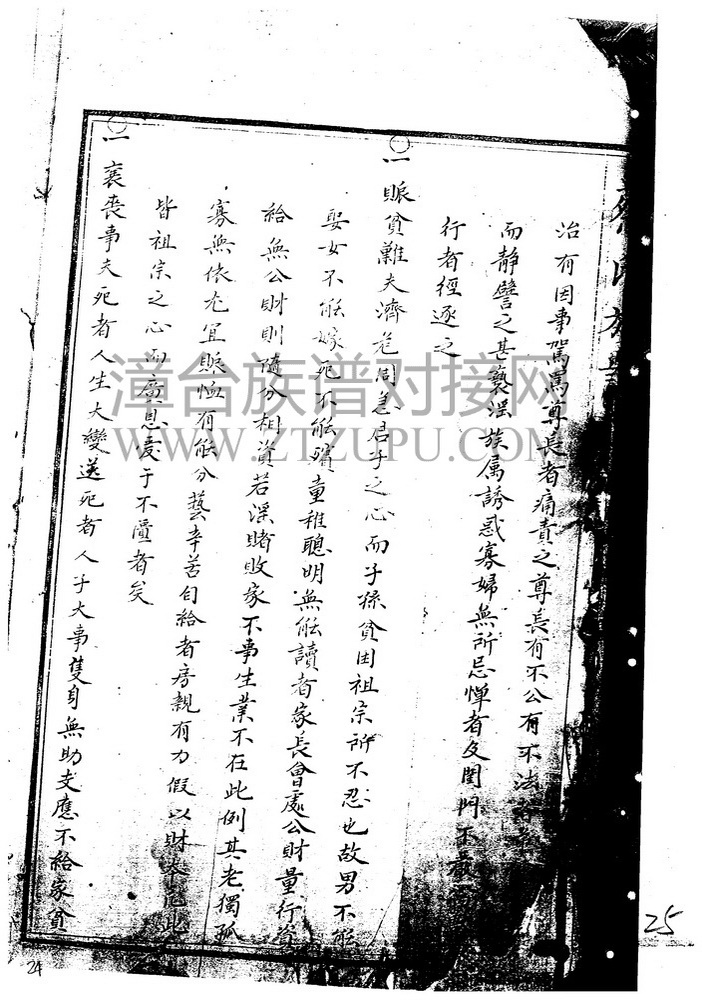 治有因事罵詈尊長者痛責之尊長有不公有不法
而靜譬之甚褻淫族属誘惑寡婦無所忌憚者及閨門不
行者經逐之
一賑貧難夫濟危周急君子之心而子孫貧困祖宗所不忍也故男不能
娶女不能嫁死不能殯童稚聰明無能讀者家長會處公財量行資
給無公財則隨分相資若淫賭敗家不事生業不在此例其老獨孤
寡無依尤宜賑恤有能分藝辛苦自給者房親有力假以財本凡此
皆祖宗之心而廣恩愛于不匱者矣
一襄喪事夫死者人生大變送死者人子大事隻身無助支應不給家貧
漳台族谱对接网
WWW.ZTZUPU.COM
25
24